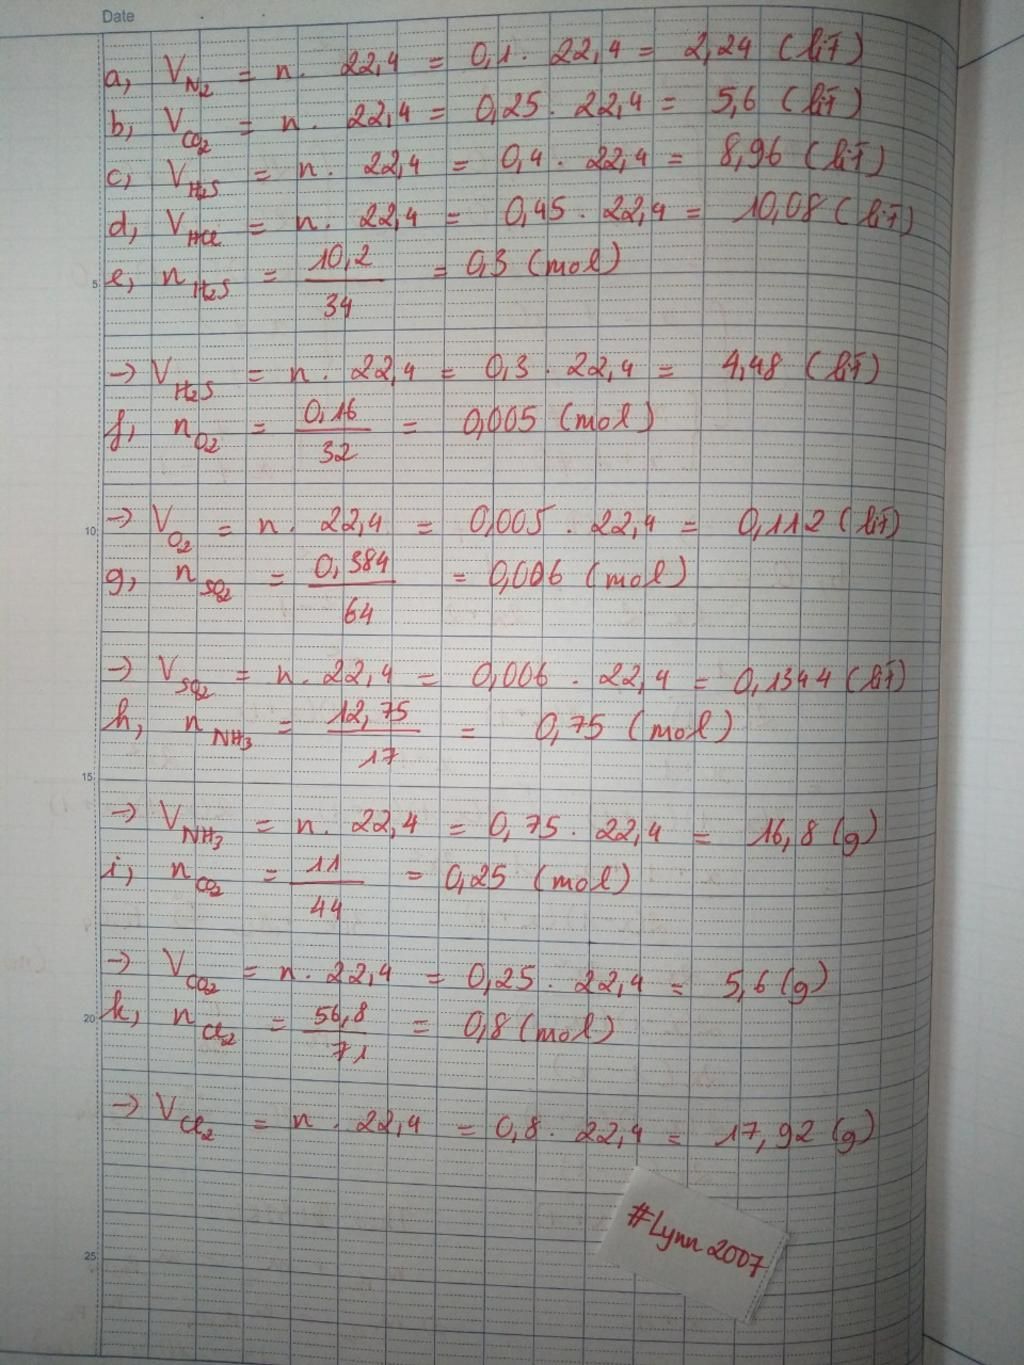 Date
a, V_N2 = n. 22,4 = 0,1. 22,4 = 2,24 (lít)
b, V_CO2 = n. 22,4 = 0,25. 22,4 = 5,6 (lít)
c, V_H2S = n. 22,4 = 0,4. 22,4 = 8,96 (lít)
d, V_HCl = n. 22,4 = 0,45. 22,4 = 10,08 (lít)
e, n_H2S = 10,2/34 = 0,3 (mol)
5
→ V_H2S = n. 22,4 = 0,3. 22,4 = 4,48 (lít)
f, n_O2 = 0,16/32 = 0,005 (mol)
10
→ V_O2 = n. 22,4 = 0,005. 22,4 = 0,112 (lít)
g, n_SO2 = 0,384/64 = 0,006 (mol)
→ V_SO2 = n. 22,4 = 0,006. 22,4 = 0,1344 (lít)
h, n_NH3 = 12,75/17 = 0,75 (mol)
15
→ V_NH3 = n. 22,4 = 0,75. 22,4 = 16,8 (g)
i, n_CO2 = 11/44 = 0,25 (mol)
→ V_CO2 = n. 22,4 = 0,25. 22,4 = 5,6 (g)
20
k, n_Cl2 = 56,8/71 = 0,8 (mol)
→ V_Cl2 = n. 22,4 = 0,8. 22,4 = 17,92 (g)
#Lynn2007
25